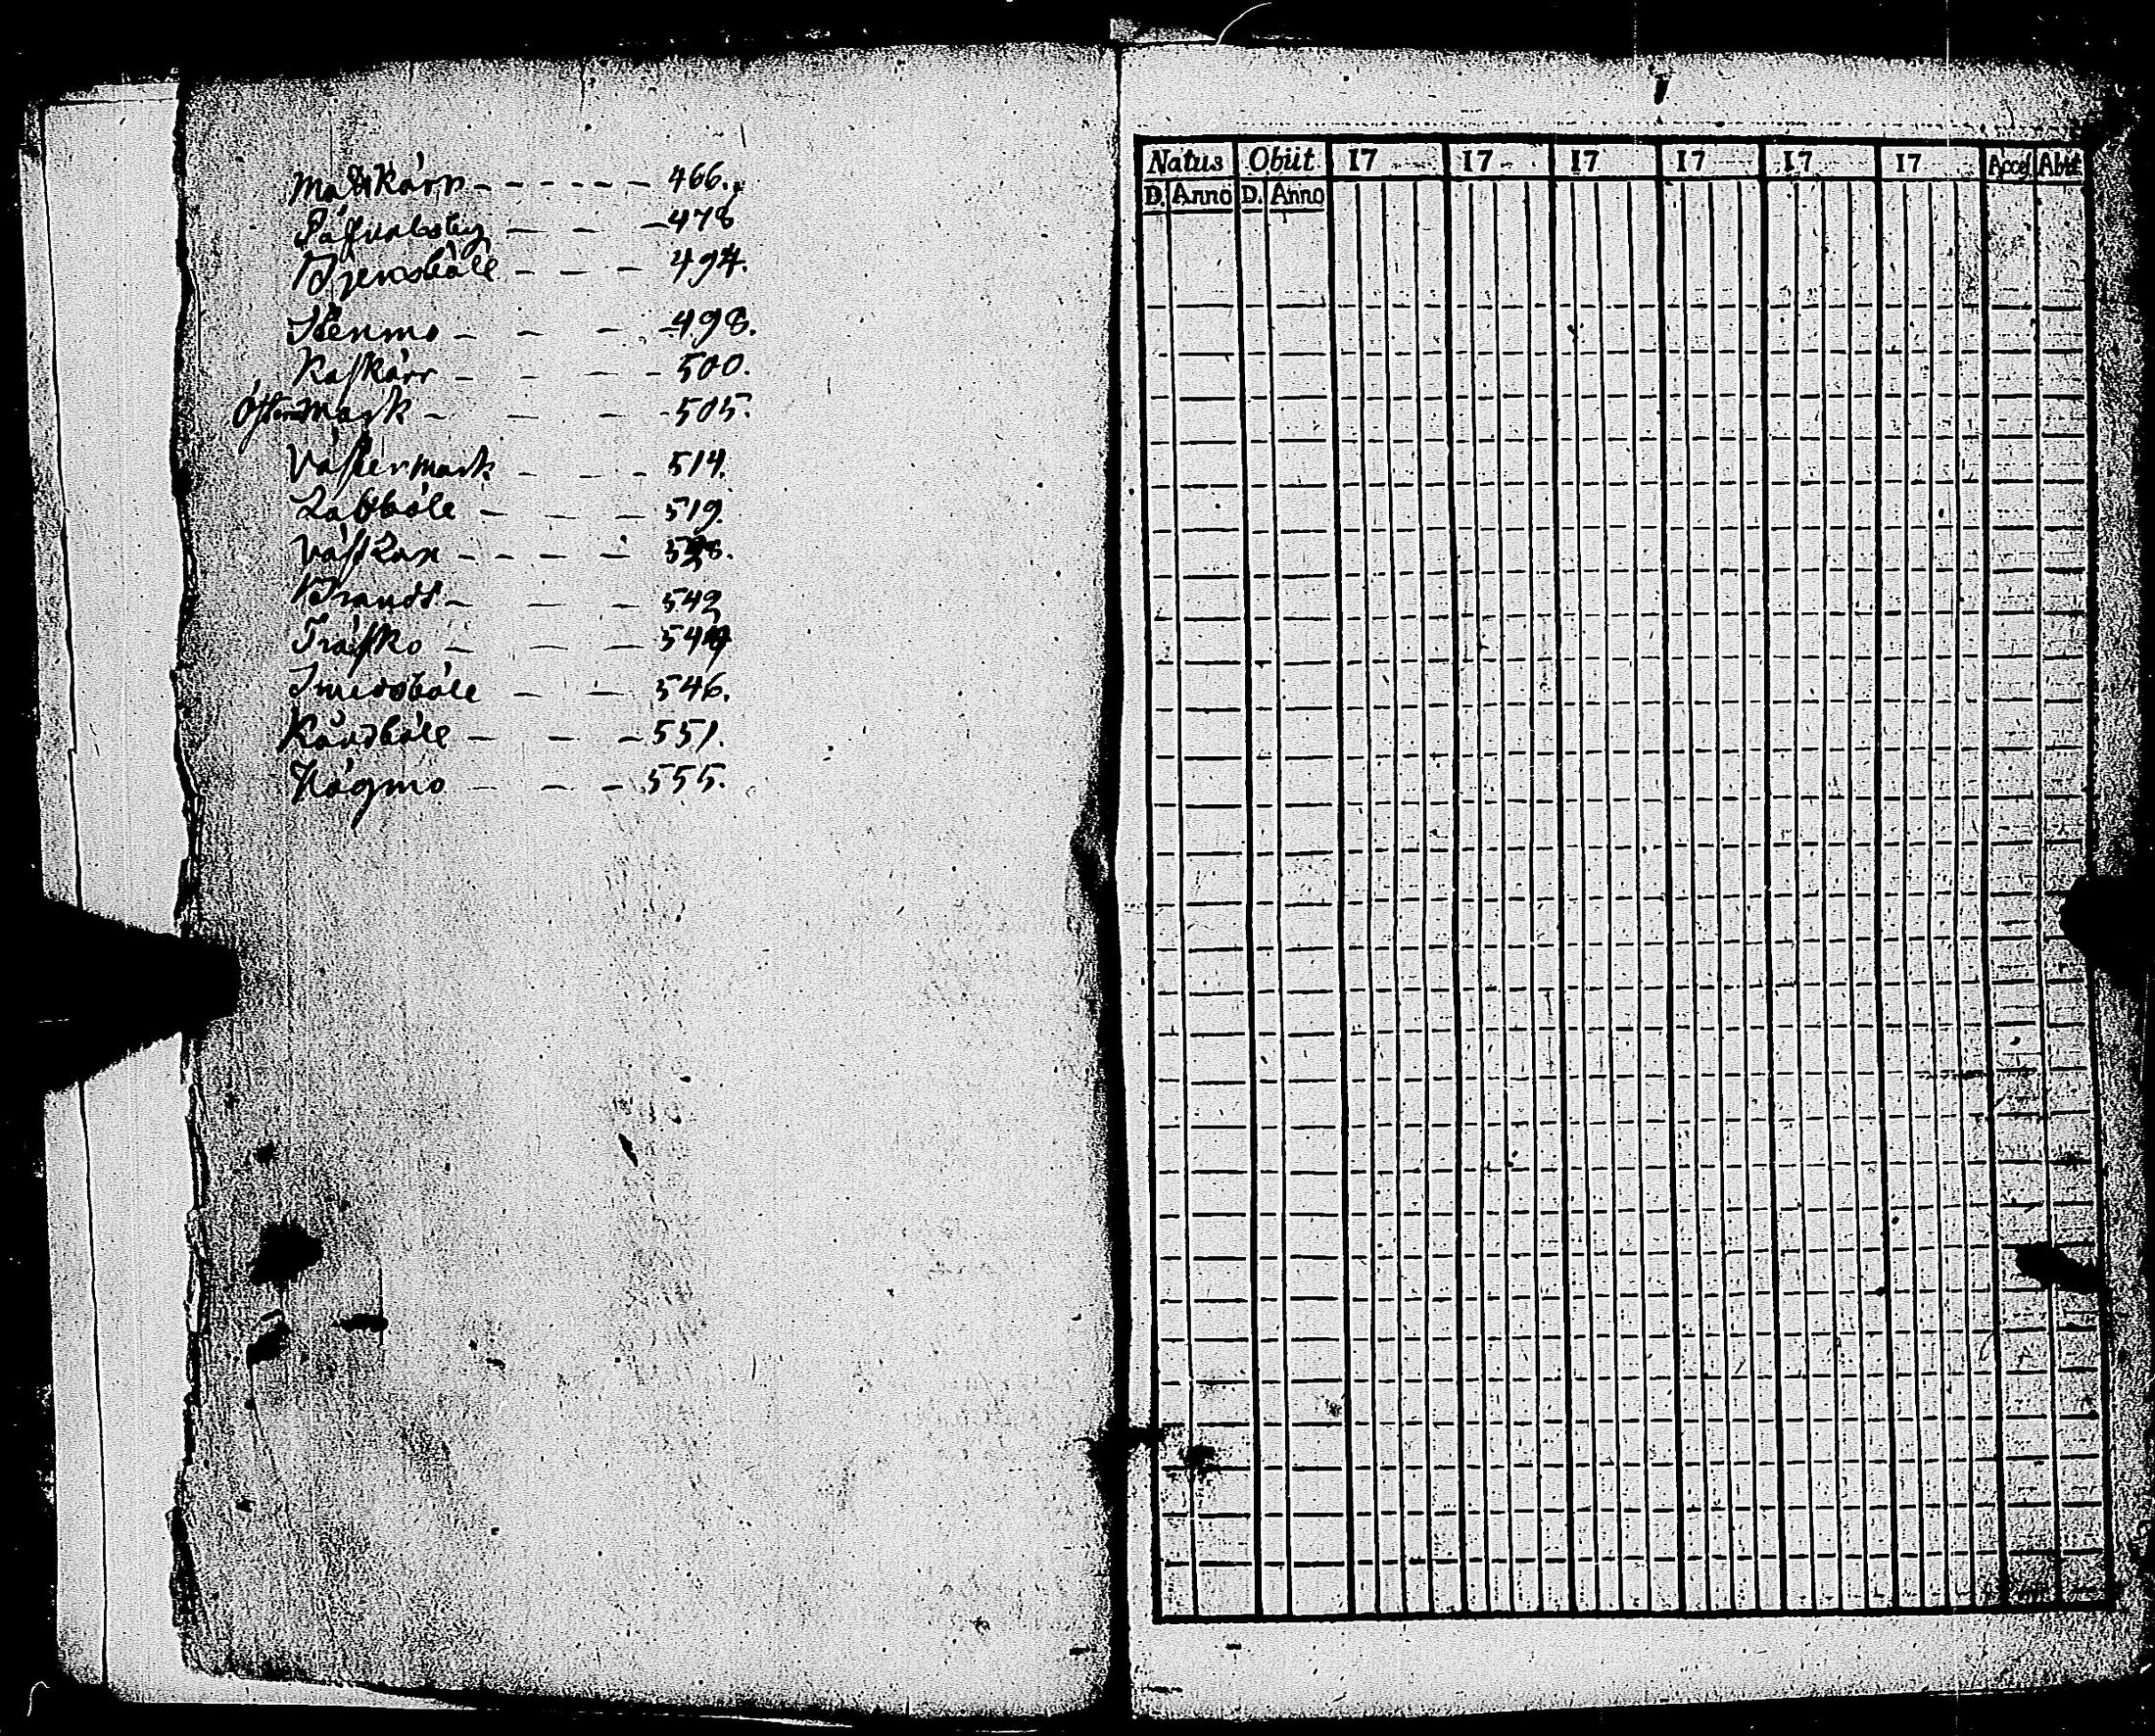 Mattkärr - - - - - - 466.
Påssvalsby - - - 478
Bjensböle - - - 494.
Stenmo - - - 498.
Kaskärr - - - 500.
Östermark - - - 505.
Västermark - - - 514.
Labböle - - - 519.
Västlax - - - - 528.
Brandt - - - 542
Träsko - - - 544
Smedsböle - - 546.
Råndböle - - - 551.
Högmo - - - 555.
Natus Obiit 17 17 17 17 17 17 Acces Abiit
D. Anno D. Anno